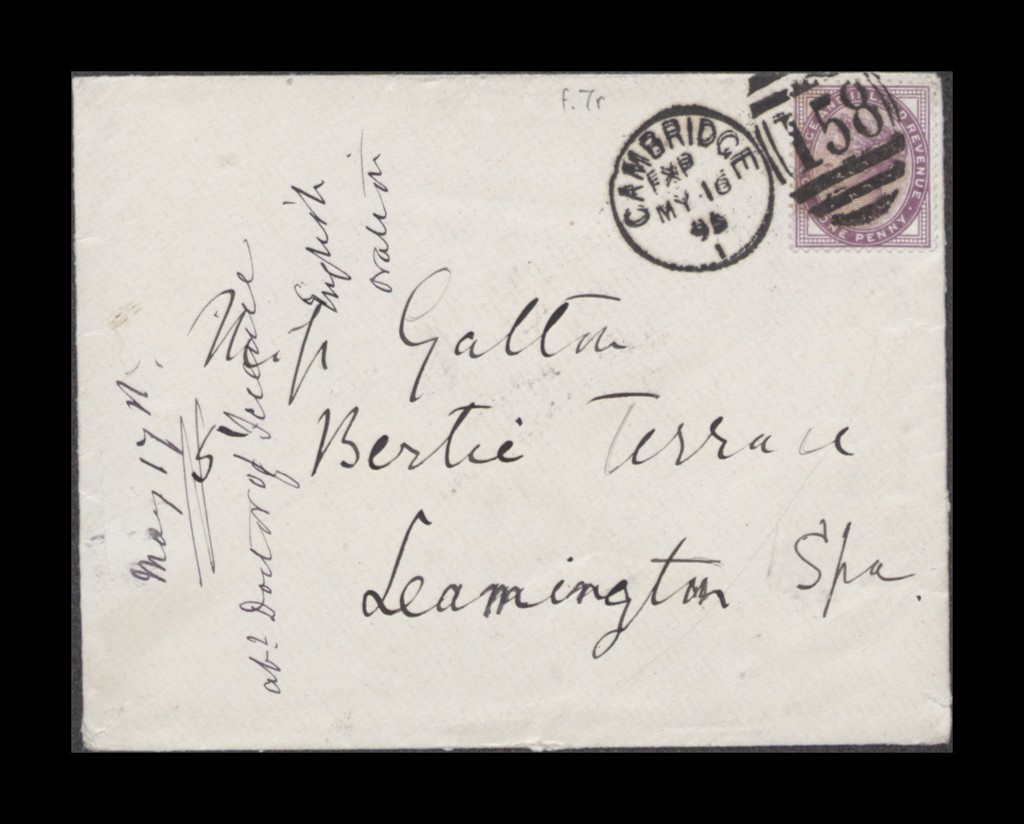 f.7r
CAMBRIDGE
EXP
MY 16
95
1
158
REVENUE
ONE PENNY
Miss Galton
Bertie Terrace
Leamington Spa.
May 17th.
5
abt Doctor of Science
English
oration